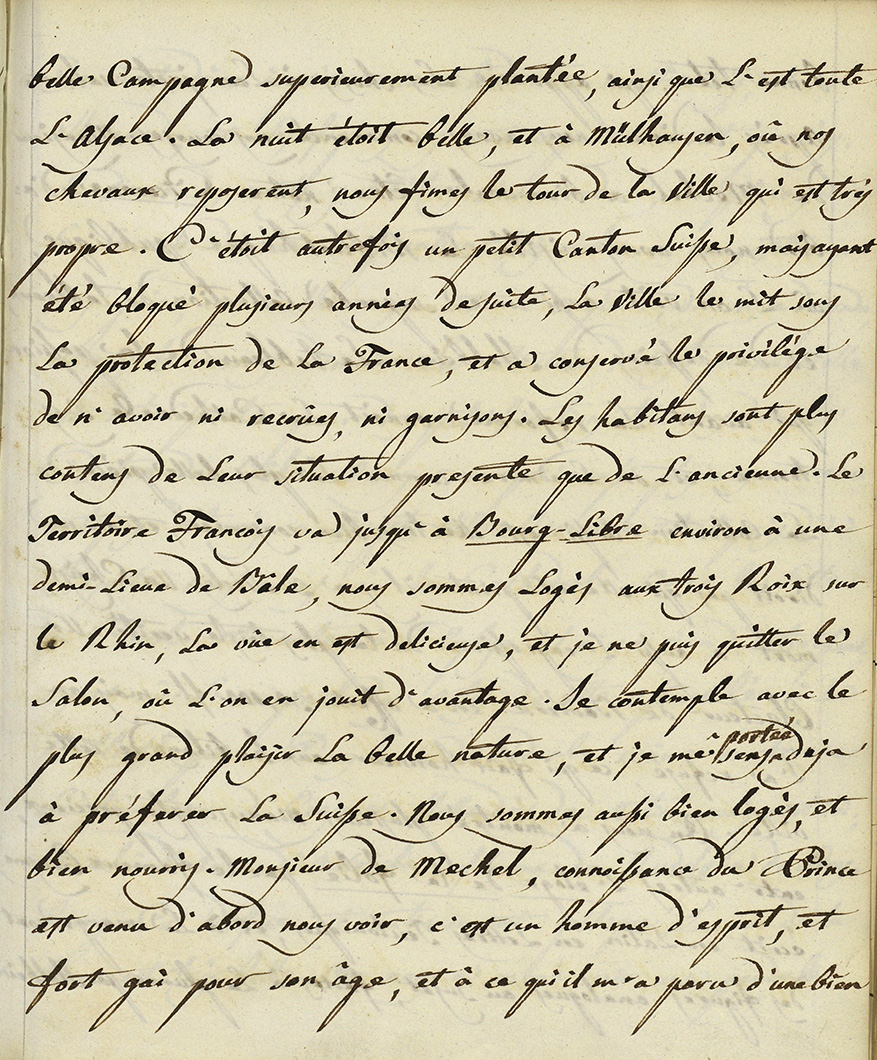 belle Campagne superieurement plantée, ainsi que L'est toute
L'Alsace. La nuit étoit belle, et à Mülhausen, où nos
chevaux reposerent, nous fimes le tour de la Ville qui est trés
propre. C'étoit autrefois un petit Canton Suisse, mais ayant
été bloqué plusieurs années de suite, La Ville se mit sous
La protection de La France, et a conservé le privilége
de n'avoir ni recrües, ni garnisons. Les habitans sont plus
contens de Leur situation presente que de L'ancienne. Le
Territoire François va jusqu'à Bourg-Libre environ à une
demi-Lieue de Bâle, nous sommes Logés aux trois Roix sur
le Rhin, La vüe en est delicieuse, et je ne puis quitter le
Salon, où L'on en jouit d'avantage. Je contemple avec le
plus grand plaisir La belle nature, et je me sens portée deja
à préferer La Suisse. Nous sommes aussi bien logés, et
bien nourris. Monsieur de Mechel, connoissance du Prince
est venu d'abord nous voir, c'est un homme d'esprit, et
fort gai pour son âge, et à ce qu'il m'a paru d'une bien